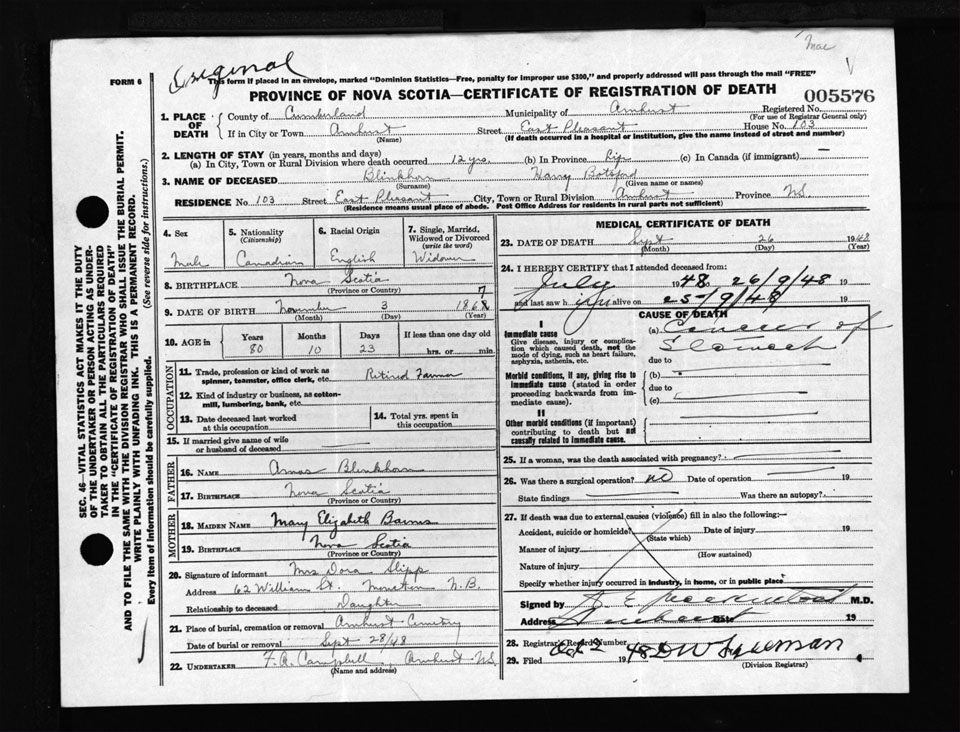 Mae
Original
FORM 6
This form if placed in an envelope, marked "Dominion Statistics—Free, penalty for improper use $300," and properly addressed will pass through the mail "FREE"
PROVINCE OF NOVA SCOTIA—CERTIFICATE OF REGISTRATION OF DEATH
005576
1. PLACE OF DEATH
County of Cumberland Municipality of Amherst Registered No.
(For use of Registrar General only)
If in City or Town Amherst Street East Pleasant House No. 103
(Name) (If death occurred in a hospital or institution, give the name instead of street and number)
2. LENGTH OF STAY (in years, months and days)
(a) In City, Town or Rural Division where death occurred 12 yrs. (b) In Province Life (c) In Canada (if immigrant) —
3. NAME OF DECEASED Blinkhorn Harry Botsford
(Surname) (Given name or names)
RESIDENCE No. 103 Street East Pleasant City, Town or Rural Division Amherst Province N.S.
(Residence means usual place of abode. Post Office Address for residents in rural parts not sufficient)
4. Sex Male
5. Nationality (Citizenship) Canadian
6. Racial Origin English
7. Single, Married, Widowed or Divorced (write the word) Widower
8. BIRTHPLACE Nova Scotia
(Province or Country)
9. DATE OF BIRTH November 3 1867
(Month) (Day) (Year)
10. AGE in Years Months Days If less than one day old
80 10 23 hrs. or min.
OCCUPATION
11. Trade, profession or kind of work as spinner, teamster, office clerk, etc. Retired Farmer
12. Kind of industry or business, as cotton-mill, lumbering, bank, etc.
13. Date deceased last worked at this occupation
14. Total yrs. spent in this occupation
15. If married give name of wife or husband of deceased
FATHER
16. NAME Amos Blinkhorn
17. BIRTHPLACE Nova Scotia
(Province or Country)
MOTHER
18. MAIDEN NAME Mary Elizabeth Barnes
19. BIRTHPLACE Nova Scotia
(Province or Country)
20. Signature of informant Mrs Dora Slipp
Address 62 William St. Moncton N.B.
Relationship to deceased Daughter
21. Place of burial, cremation or removal Amherst Cemetery
Date of burial or removal Sept 28/48
22. UNDERTAKER F. A. Campbell Amherst N.S.
(Name and address)
MEDICAL CERTIFICATE OF DEATH
23. DATE OF DEATH Sept 26 1948
(Month) (Day) (Year)
24. I HEREBY CERTIFY that I attended deceased from:
July 1948 to 26/9/48 19
and last saw h im alive on 25/9/48 19
CAUSE OF DEATH
I
Immediate cause
Give disease, injury or complication which caused death, not the mode of dying, such as heart failure, asphyxia, asthenia, etc.
(a) Cancer of Stomach
due to
Morbid conditions, if any, giving rise to immediate cause (stated in order proceeding backwards from immediate cause).
(b)
due to
(c)
II
Other morbid conditions (if important) contributing to death but not causally related to immediate cause.
25. If a woman, was the death associated with pregnancy?
26. Was there a surgical operation? no Date of operation 19
State findings Was there an autopsy?
27. If death was due to external causes (violence) fill in also the following:—
Accident, suicide or homicide? Date of injury 19
(State which)
Manner of injury
(How sustained)
Nature of injury
Specify whether injury occurred in industry, in home, or in public place
Signed by M.D.
Address Amherst Date 19
28. Registrar's Record Number
29. Filed Oct 2 1948
(Division Registrar)
SEC. 46—VITAL STATISTICS ACT MAKES IT THE DUTY
OF THE UNDERTAKER OR PERSON ACTING AS UNDER-
TAKER TO OBTAIN ALL THE PARTICULARS REQUIRED
IN THE "CERTIFICATE OF REGISTRATION OF DEATH"
AND TO FILE THE SAME WITH THE DIVISION REGISTRAR WHO SHALL ISSUE THE BURIAL PERMIT.
WRITE PLAINLY WITH UNFADING INK. THIS IS A PERMANENT RECORD.
Every item of Information should be carefully supplied. (See reverse side for instructions.)